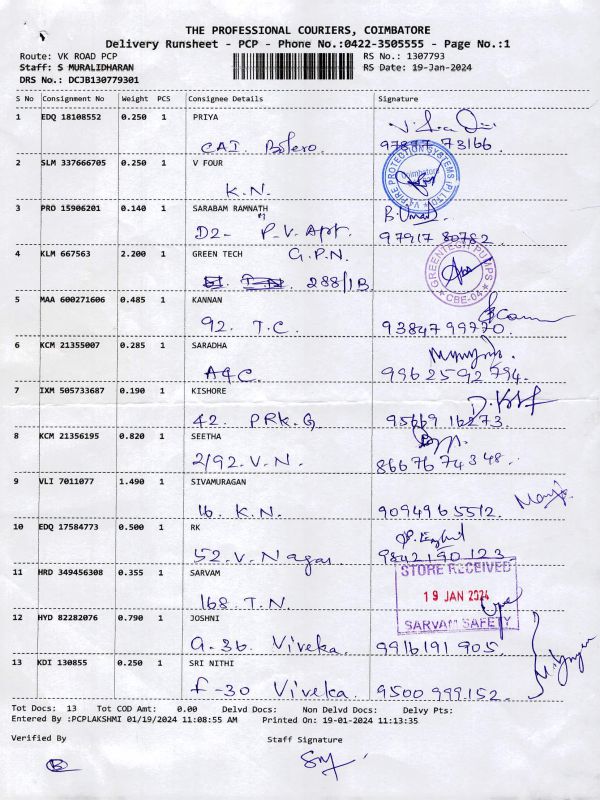 THE PROFESSIONAL COURIERS, COIMBATORE
Delivery Runsheet - PCP - Phone No.:0422-3505555 - Page No.:1
Route: VK ROAD PCP
Staff: S MURALIDHARAN
DRS No.: DCJB130779301
RS No.: 1307793
RS Date: 19-Jan-2024
S No Consignment No Weight PCS Consignee Details Signature
1 EDQ 18108552 0.250 1 PRIYA
CAI Bolero. 97877 73166
2 SLM 337666705 0.250 1 V FOUR
K.N.
V4 FIRE PROTECTION SYSTEMS (P) LTD
Coimbatore
3 PRO 15906201 0.140 1 SARABAM RAMNATH
D2- P.V. Apt. 97917 80782
4 KLM 667563 2.200 1 GREEN TECH G.P.N.
288/1B
GREENTECH PUMPS
CBE-04
5 MAA 600271606 0.485 1 KANNAN
92. T.C. 9384799770.
6 KCM 21355007 0.285 1 SARADHA
A9C. 9962592794.
7 IXM 505733687 0.190 1 KISHORE
42. PRK.G 95669 16273.
8 KCM 21356195 0.820 1 SEETHA
2/92.V.N. 8667674348.
9 VLI 7011077 1.490 1 SIVAMURAGAN
16. K.N. 9094965512.
10 EDQ 17584773 0.500 1 RK
52.V.Nagar 9842190123
11 HRD 349456308 0.355 1 SARVAM
168. T.N.
STORE RECEIVED
19 JAN 2024
SARVAM SAFETY
12 HYD 82282076 0.790 1 JOSHNI
G.36. Viveka. 9916191905.
13 KDI 130855 0.250 1 SRI NITHI
F-30 Viveka. 9500999152.
Tot Docs: 13 Tot COD Amt: 0.00 Delvd Docs: Non Delvd Docs: Delvy Pts:
Entered By :PCPLAKSHMI 01/19/2024 11:08:55 AM Printed On: 19-01-2024 11:13:35
Verified By Staff Signature